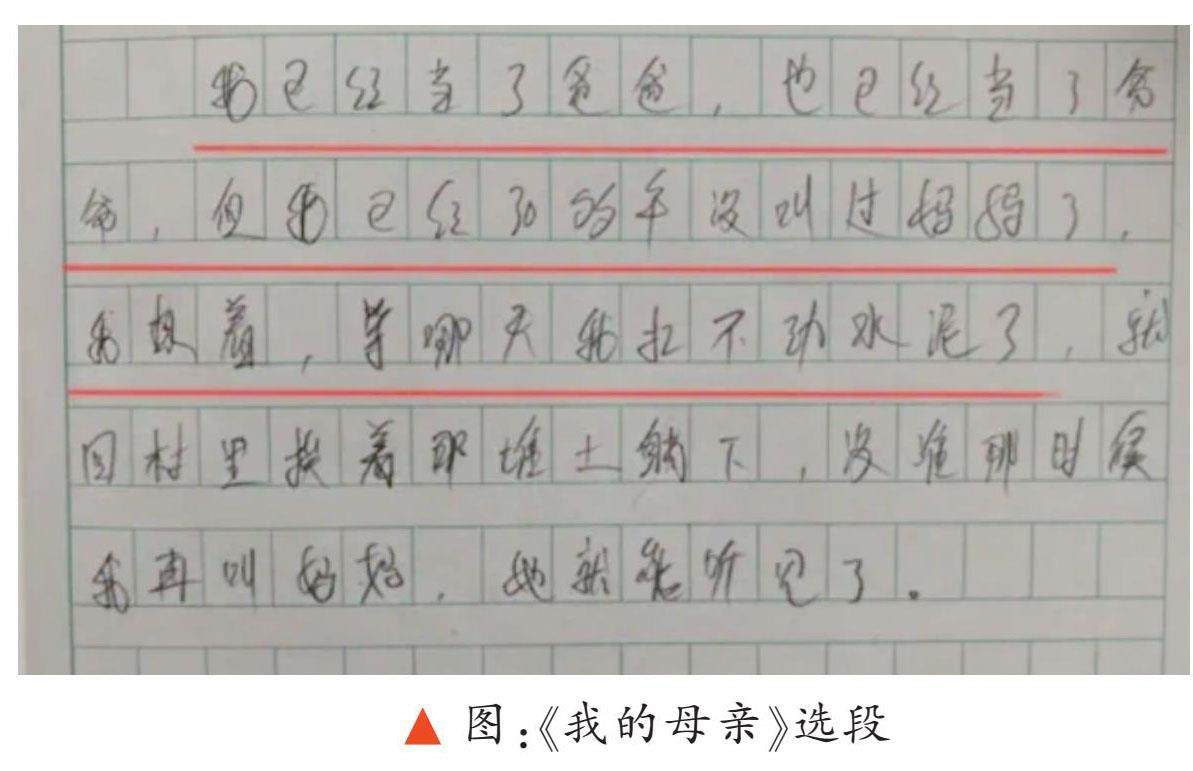 我已经当了爸爸，也已经当了爷
爷，但我已经30的年没叫过妈妈了，
我想着，等哪天我扛不动水泥了，就
回村里挨着那堆土躺下，没准那时候
我再叫妈妈，她就能听见了。
▲ 图：《我的母亲》选段